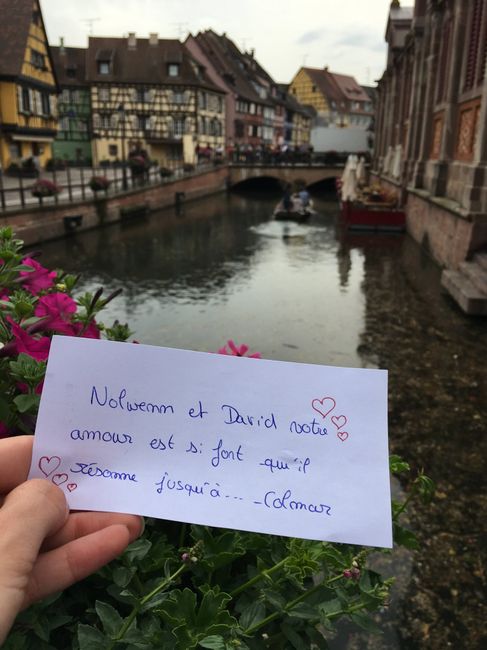 Nolwenn et David votre
amour est si fort qu'il
résonne jusqu'à... Colmar